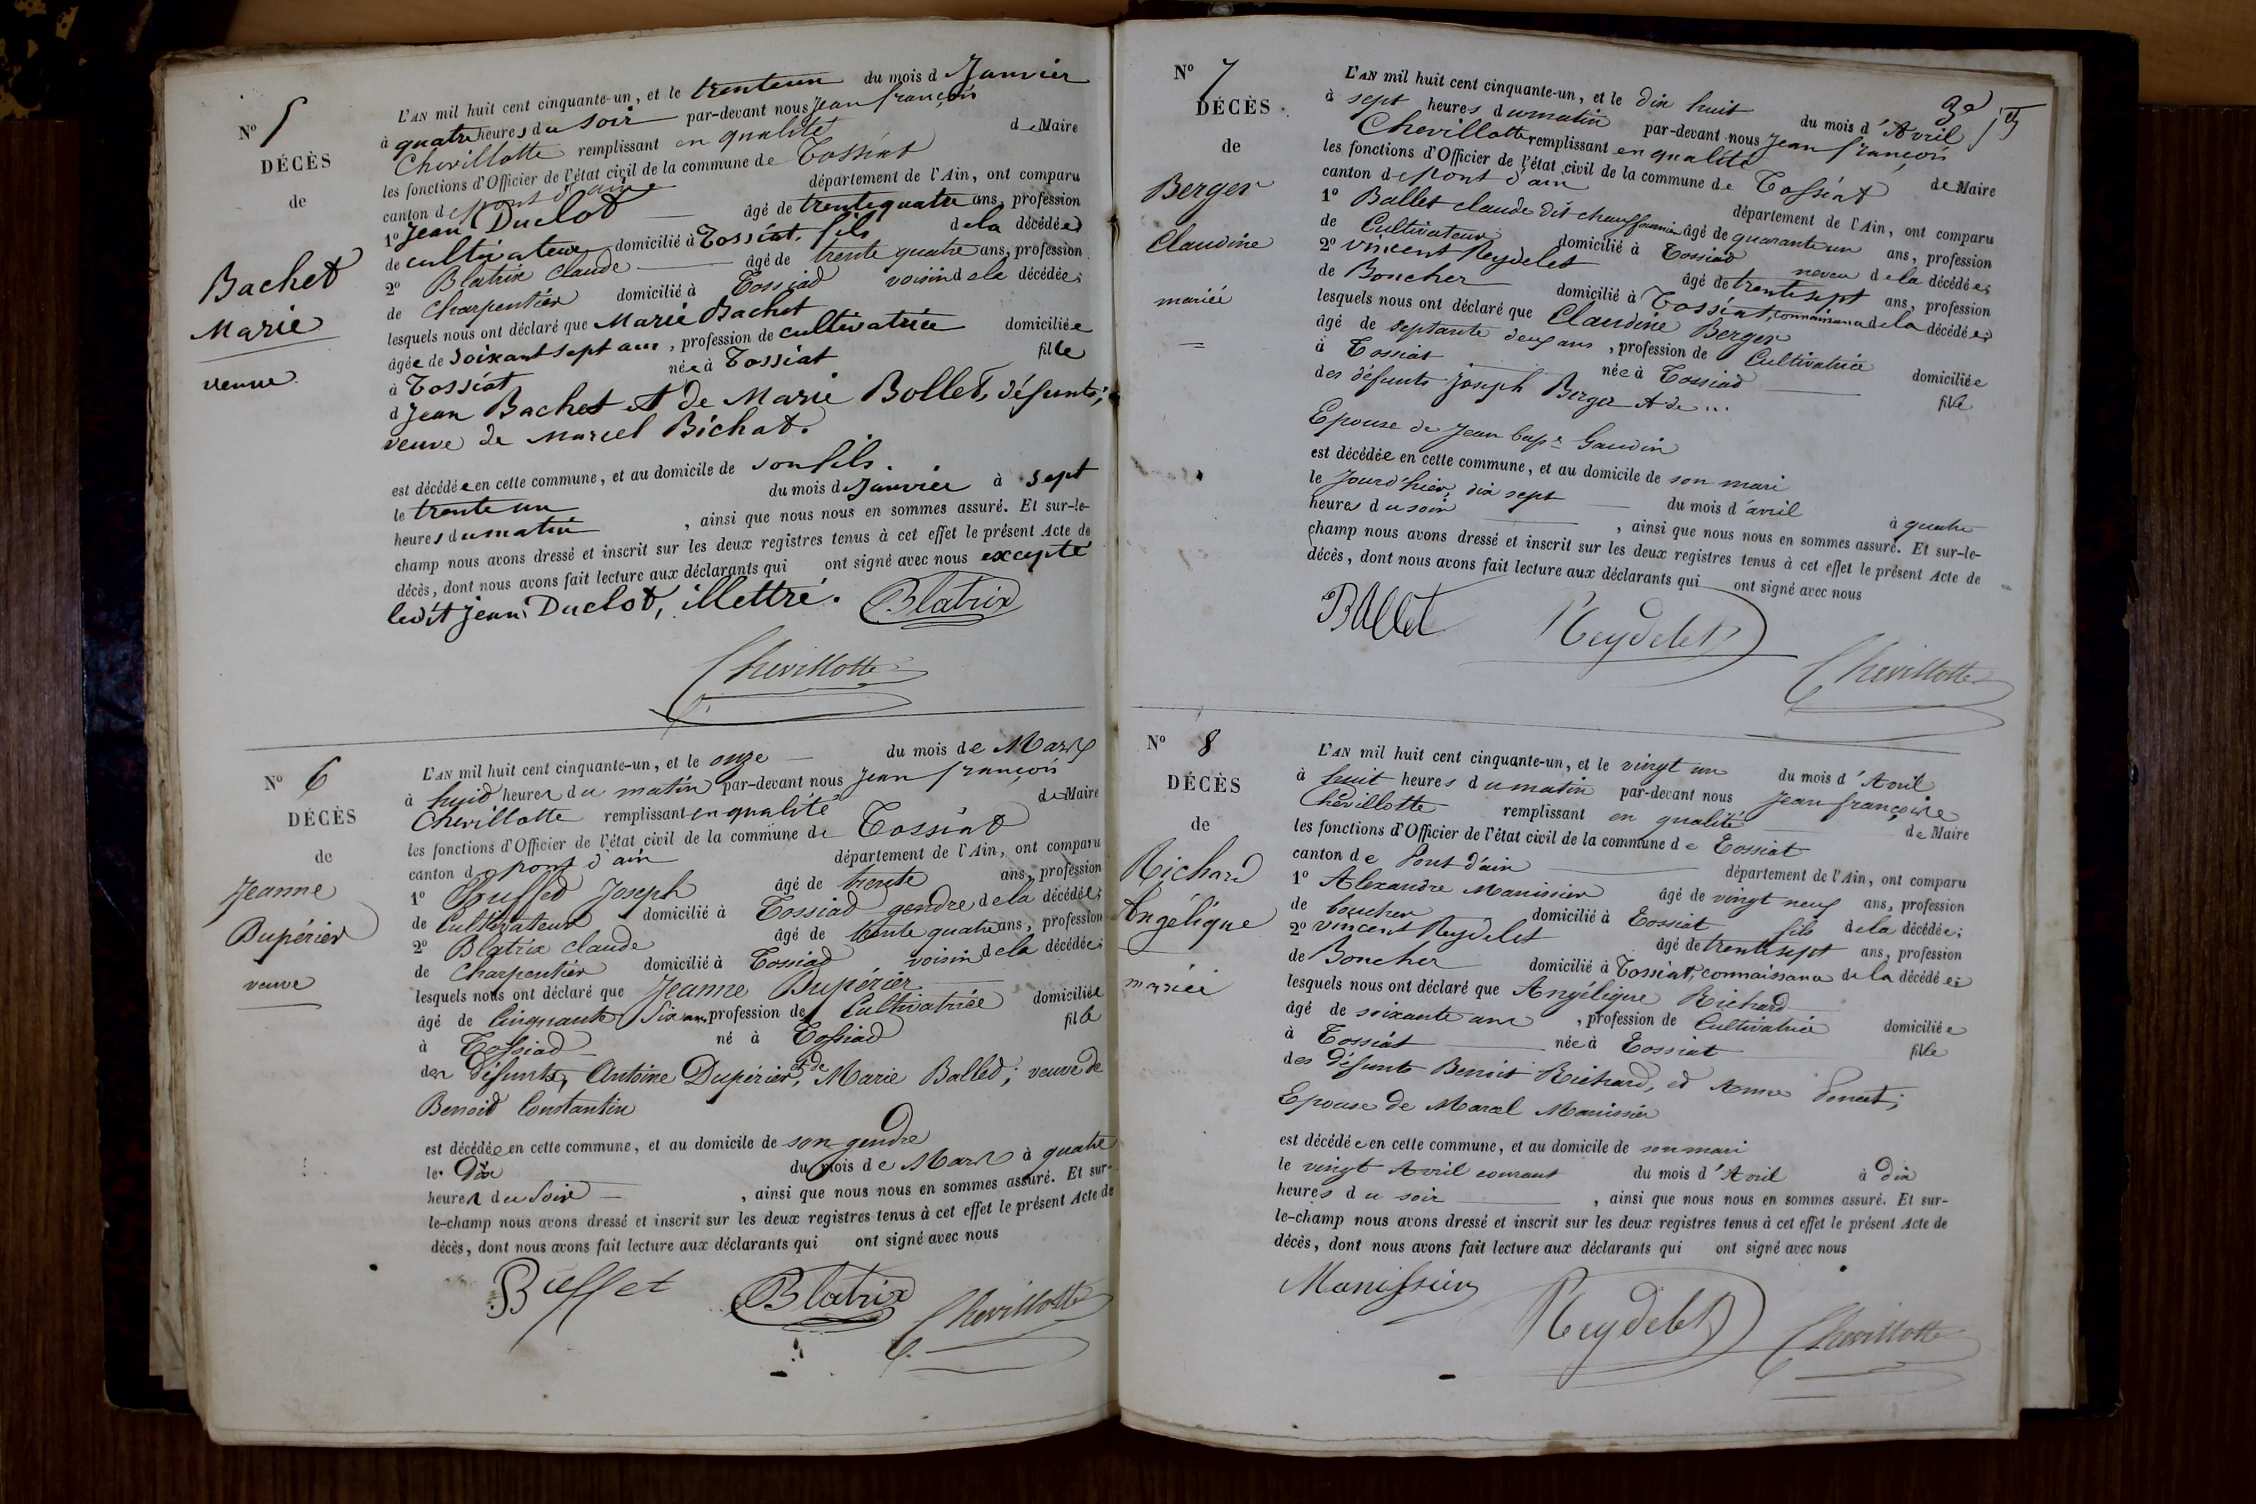 N° 5
DÉCÈS
de
Bachet
Marie
veuve
L'AN mil huit cent cinquante-un, et le trenteun du mois d Janvier
à quatre heures du soir par-devant nous Jean françois
Chevillotte remplissant en qualité de Maire
les fonctions d'Officier de l'état civil de la commune de Tossiat
canton de pont d'ain département de l'Ain, ont comparu
1° Jean Duclot âgé de trentequatre ans, profession
de cultivateur domicilié à Tossiat, fils de la décédée
2° Blatrix Claude âgé de trente quatre ans, profession
de Charpentier domicilié à Tossiad voisin de la décédée;
lesquels nous ont déclaré que Marie Bachet
âgée de soixant sept ans, profession de cultivatrice domiciliée
à Tossiat née à Tossiat fille
d Jean Bachet et de Marie Bollet, défunts;
veuve de Marcel Bichat.
est décédée en cette commune, et au domicile de son fils.
le trente un du mois de Janvier à sept
heures du matin, ainsi que nous nous en sommes assuré. Et sur-le-
champ nous avons dressé et inscrit sur les deux registres tenus à cet effet le présent Acte de
décès, dont nous avons fait lecture aux déclarants qui ont signé avec nous excepté
ledit jean Duclot, illettré. Blatrix
Chevillotte
N° 6
DÉCÈS
de
Jeanne
Dupérier
veuve
L'AN mil huit cent cinquante-un, et le onze du mois de Mars
à huid heures du matin par-devant nous Jean françois
Chevillotte remplissant en qualité de Maire
les fonctions d'Officier de l'état civil de la commune de Tossiat
canton d pont d'ain département de l'Ain, ont comparu
1° Buffed Joseph âgé de trente ans, profession
de Cultivateur domicilié à Tossiad gendre de la décédée;
2° Blatrix claude âgé de trente quatre ans, profession
de Charpentier domicilié à Tossiad voisin de la décédée;
lesquels nous ont déclaré que Jeanne Dupérier
âgé de Cinquante Six ans, profession de Cultivatrice domiciliée
à Tossiad né à Tossiad fille
des défunts, Antoine Dupérier, et de Marie Balled; veuve de
Benoid Constantin
est décédée en cette commune, et au domicile de son gendre
le Dix du mois de Mars à quatre
heures du Soir, ainsi que nous nous en sommes assuré. Et sur-
le-champ nous avons dressé et inscrit sur les deux registres tenus à cet effet le présent Acte de
décès, dont nous avons fait lecture aux déclarants qui ont signé avec nous
Buffet Blatrix Chevillotte
N° 7
DÉCÈS
de
Berger
Claudine
mariée
L'AN mil huit cent cinquante-un, et le dix huit du mois d'Avril
à sept heures du matin par-devant nous Jean françois
Chevillotte remplissant en qualité de Maire
les fonctions d'Officier de l'état civil de la commune de Tossiat
canton de pont d'ain département de l'Ain, ont comparu
1° Ballet claude dit chauffournier âgé de quarante un ans, profession
de Cultivateur domicilié à Tossiad neveu de la décédée;
2° Vincent Reydelet âgé de trente sept ans, profession
de Boucher domicilié à Tossiat, connaissance de la décédée;
lesquels nous ont déclaré que Claudine Berger
âgé de septante deux ans, profession de Cultivatrice domiciliée
à Tossiat née à Tossiad fille
des défunts Joseph Berger et de ...
Epouse de Jean bapte Gaudin
est décédée en cette commune, et au domicile de son mari
le Jourd'hier, dix sept du mois d'avril à quatre
heures du soir, ainsi que nous nous en sommes assuré. Et sur-le-
champ nous avons dressé et inscrit sur les deux registres tenus à cet effet le présent Acte de
décès, dont nous avons fait lecture aux déclarants qui ont signé avec nous
Ballet Reydelet
Chevillotte
N° 8
DÉCÈS
de
Richard
Angélique
mariée
L'AN mil huit cent cinquante-un, et le vingt un du mois d'Avril
à huit heures du matin par-devant nous Jean françoise
Chevillotte remplissant en qualité de Maire
les fonctions d'Officier de l'état civil de la commune de Tossiat
canton de Pont d'ain département de l'Ain, ont comparu
1° Alexandre Manissier âgé de vingt neuf ans, profession
de boucher domicilié à Tossiat fils de la décédée;
2° Vincent Reydelet âgé de trente sept ans, profession
de Boucher domicilié à Tossiat, connaissance de la décédée;
lesquels nous ont déclaré que Angélique Richard
âgé de soixante ans, profession de Cultivatrice domiciliée
à Tossiat née à Tossiat fille
des défunts Benoit Richard, et Anne
Epouse de Marcel Manissier
est décédée en cette commune, et au domicile de son mari
le vingt Avril courant du mois d'Avril à dix
heures du soir, ainsi que nous nous en sommes assuré. Et sur-
le-champ nous avons dressé et inscrit sur les deux registres tenus à cet effet le présent Acte de
décès, dont nous avons fait lecture aux déclarants qui ont signé avec nous
Manissier Reydelet Chevillotte